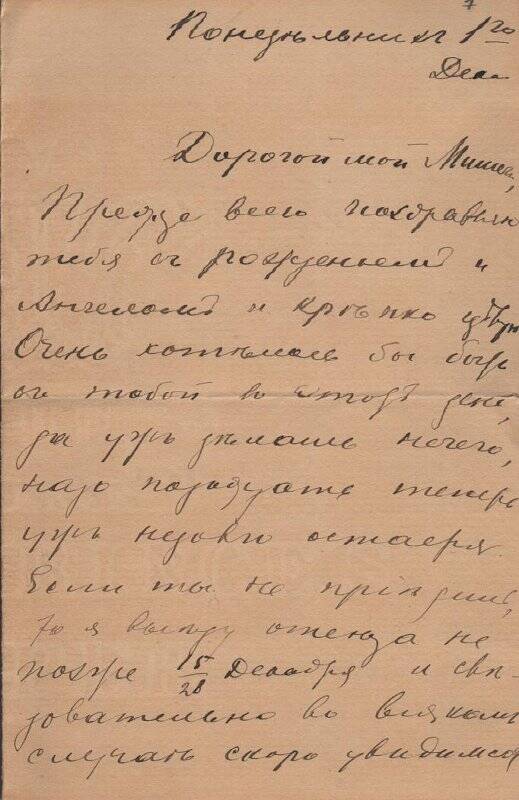 7
Понедѣльникъ 1го
Дека
Дорогой мой Миша,
Прежде всего поздравляю
тебя съ рожденьемъ и
Ангеломъ и крѣпко цѣлую
Очень хотѣлось бы быть
съ тобой въ этотъ день,
да ужъ дѣлать нечего,
надо подождать теперь
ужъ недолго остается.
Если ты не пріѣдешь,
то я выѣду отсюда не
позже 15/28 Декабря и слѣ-
довательно во всякомъ
случаѣ скоро увидимся